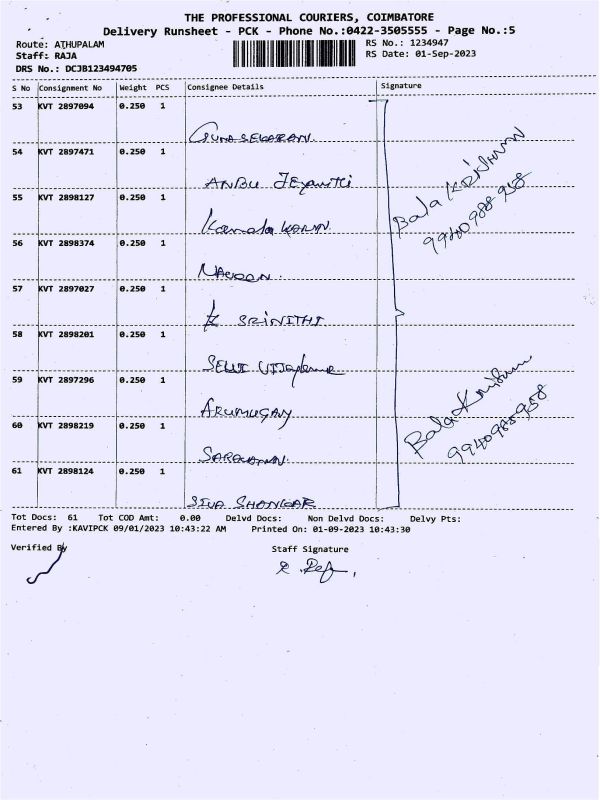 THE PROFESSIONAL COURIERS, COIMBATORE
Delivery Runsheet - PCK - Phone No.:0422-3505555 - Page No.:5
Route: ATHUPALAM
RS No.: 1234947
Staff: RAJA
RS Date: 01-Sep-2023
DRS No.: DCJB123494705
S No Consignment No Weight PCS Consignee Details Signature
53 KVT 2897094 0.250 1
GUNASEKARAN
54 KVT 2897471 0.250 1
ANBU
55 KVT 2898127 0.250 1
Kamala
Bala Krishnan
9940988958
56 KVT 2898374 0.250 1
NAVEEN.
57 KVT 2897027 0.250 1
K SRINITHI
58 KVT 2898201 0.250 1
59 KVT 2897296 0.250 1
ARUMUGAM
60 KVT 2898219 0.250 1
SARAVANAN.
Bala Krishnan
9940988958
61 KVT 2898124 0.250 1
SIVA SHANKAR
Tot Docs: 61 Tot COD Amt: 0.00 Delvd Docs: Non Delvd Docs: Delvy Pts:
Entered By :KAVIPCK 09/01/2023 10:43:22 AM Printed On: 01-09-2023 10:43:30
Verified By
Staff Signature